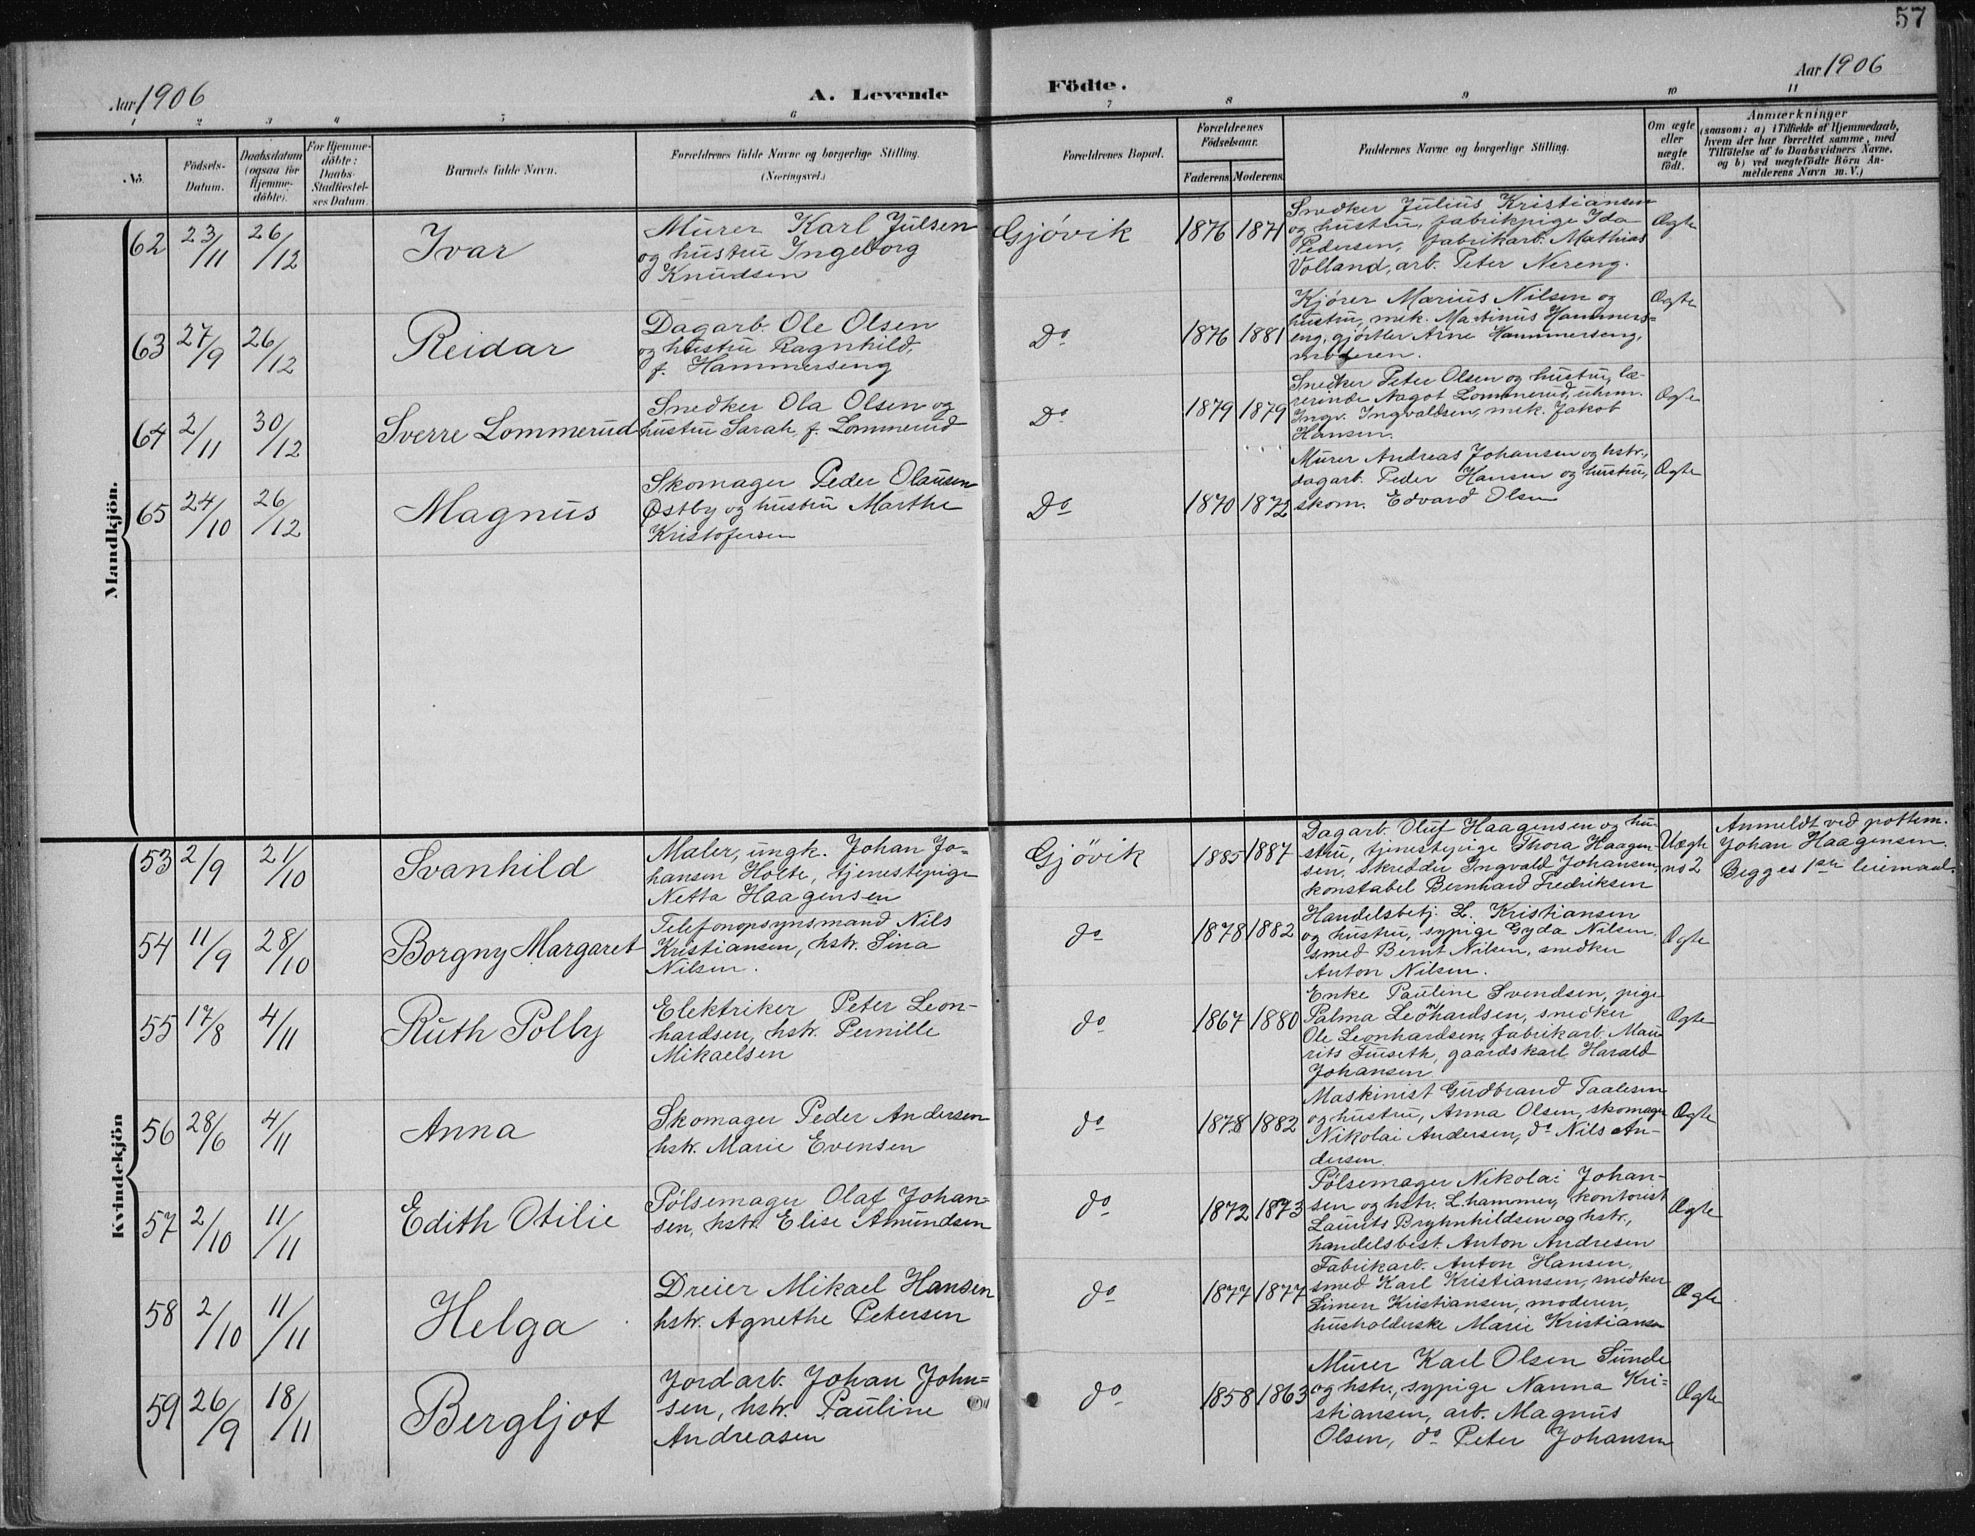 57
Aar 1906
A. Levende
Födte.
Aar 1906
1
2
3
4
5
6
7
8
9
10
11
No.
Födsels-
Datum.
Daabsdatum
(ogsaa for
Hjemme-
döbte).
For Hjemme-
döbte:
Daabs-
Stadfæstel-
ses Datum.
Barnets fulde Navn.
Forældrenes fulde Navne og borgerlige Stilling.
(Næringsvei.)
Forældrenes Bopæl.
Forældrenes
Födselsaar.
Faderens.
Moderens.
Faddernes Navne og borgerlige Stilling.
Om ægte
eller
uægte
født.
Anmærkninger
(saasom: a) i Tilfælde af Hjemmedaab,
hvem der har forrettet samme, med
Tilföielse af to Daabsvidners Navne,
og b) ved uægtefödte Börn An-
melderens Navn m. V.)
Mandkjön.
62
23/11
26/12
Ivar
Murer Karl Julsen
og hustru Ingeborg
Knudsen
Gjøvik
1876
1871
Snedker Julius Kristiansen
og hustru, fabrikpige Ida
Pedersen, fabrikarb. Mathias
Volland, arb. Peter Nereng.
Ægte
63
27/9
26/12
Reidar
Dagarb. Ole Olsen
og hustru Ragnhild,
f. Hammerseng
Do
1876
1881
Kjører Marius Nilsen og
hustru, mek. Martinus Hammers=
eng, gjørtler Arne Hammerseng,
moderen.
Ægte
64
2/11
30/12
Sverre Lommerud
Snedker Ola Olsen og
hustru Sarah, f. Lommerud
Do
1879
1879
Snedker Peter Olsen og hustru, læ-
rerinde Aagot Lommerud, uhrm.
Ingv. Ingvaldsen, mek. Jakob
Hansen.
Ægte
65
24/10
26/12
Magnus
Skomager Peder Olausen
Østby og hustru Marthe
Kristofersen
Do
1870
1872
Murer Andreas Johansen og hstr.,
dagarb. Peder Hansen og hustru,
skom. Edvard Olsen
Ægte
Kvindekjön
53
2/9
21/10
Svanhild
Maler, ungk. Johan Jo-
hansen Holte, tjenestepige
Netta Haagensen
Gjøvik
1885
1887
Dagarb. Oluf Haagensen og hu-
stru, tjenestepige Thora Haagen-
sen, skrædder Ingvald Johansen,
konstabel Bernhard Fredriksen
Uægte
no 2
Anmeldt ved pottem.
Johan Haagensen.
Begges 1ste leiermaal.
54
11/9
28/10
Borgny Margaret
Telefonopsynsmand Nils
Kristiansen, hstr. Sina
Nilsen.
do
1878
1882
Handelsbetj. L. Kristiansen
og hustru, sypige Gyda Nilsen,
smed Bernt Nilsen, snedker
Anton Nilsen.
Ægte
55
17/8
4/11
Ruth Polly
Elektriker Peter Leon-
hardsen, hstr. Pernille
Mikaelsen
do
1867
1880
Enke Pauline Svendsen, pige
Palma Leonhardsen, snedker
Ole Leonhardsen, fabrikarb. Mau-
rits Tuseth, gaardskarl Harald
Johansen
Ægte
56
28/6
4/11
Anna
Skomager Peder Andersen
hstr. Marie Evensen
do
1878
1882
Maskinist Gudbrand Taalesen
og hustru, Anna Olsen, skomager
Nikolai Andersen, do Nils An-
dersen.
Ægte
57
2/10
11/11
Edith Otilie
Pølsemager Olaf Johan-
sen, hstr. Elise Amundsen
do
1872
1873
Pølsemager Nikolai Johan-
sen og hstr. L.hammer, kontorist
Laurits Brynhildsen og hstr.,
handelsbest. Anton Andresen
Ægte
58
2/10
11/11
Helga
Dreier Mikael Hansen
hstr. Agnethe Petersen
do
1877
1877
Fabrikarb. Anton Hansen,
smed Karl Kristiansen, snedker
Simen Kristiansen, moderen,
husholderske Marie Kristiansen
Ægte
59
26/9
18/11
Bergljot
Jordarb. Johan John=
sen, hstr. Pauline
Andreasen
do
1858
1863
Murer Karl Olsen Sunde
og hstr., sypige Nanna Kri=
stiansen, arb. Magnus
Olsen, do Peter Johansen
Ægte